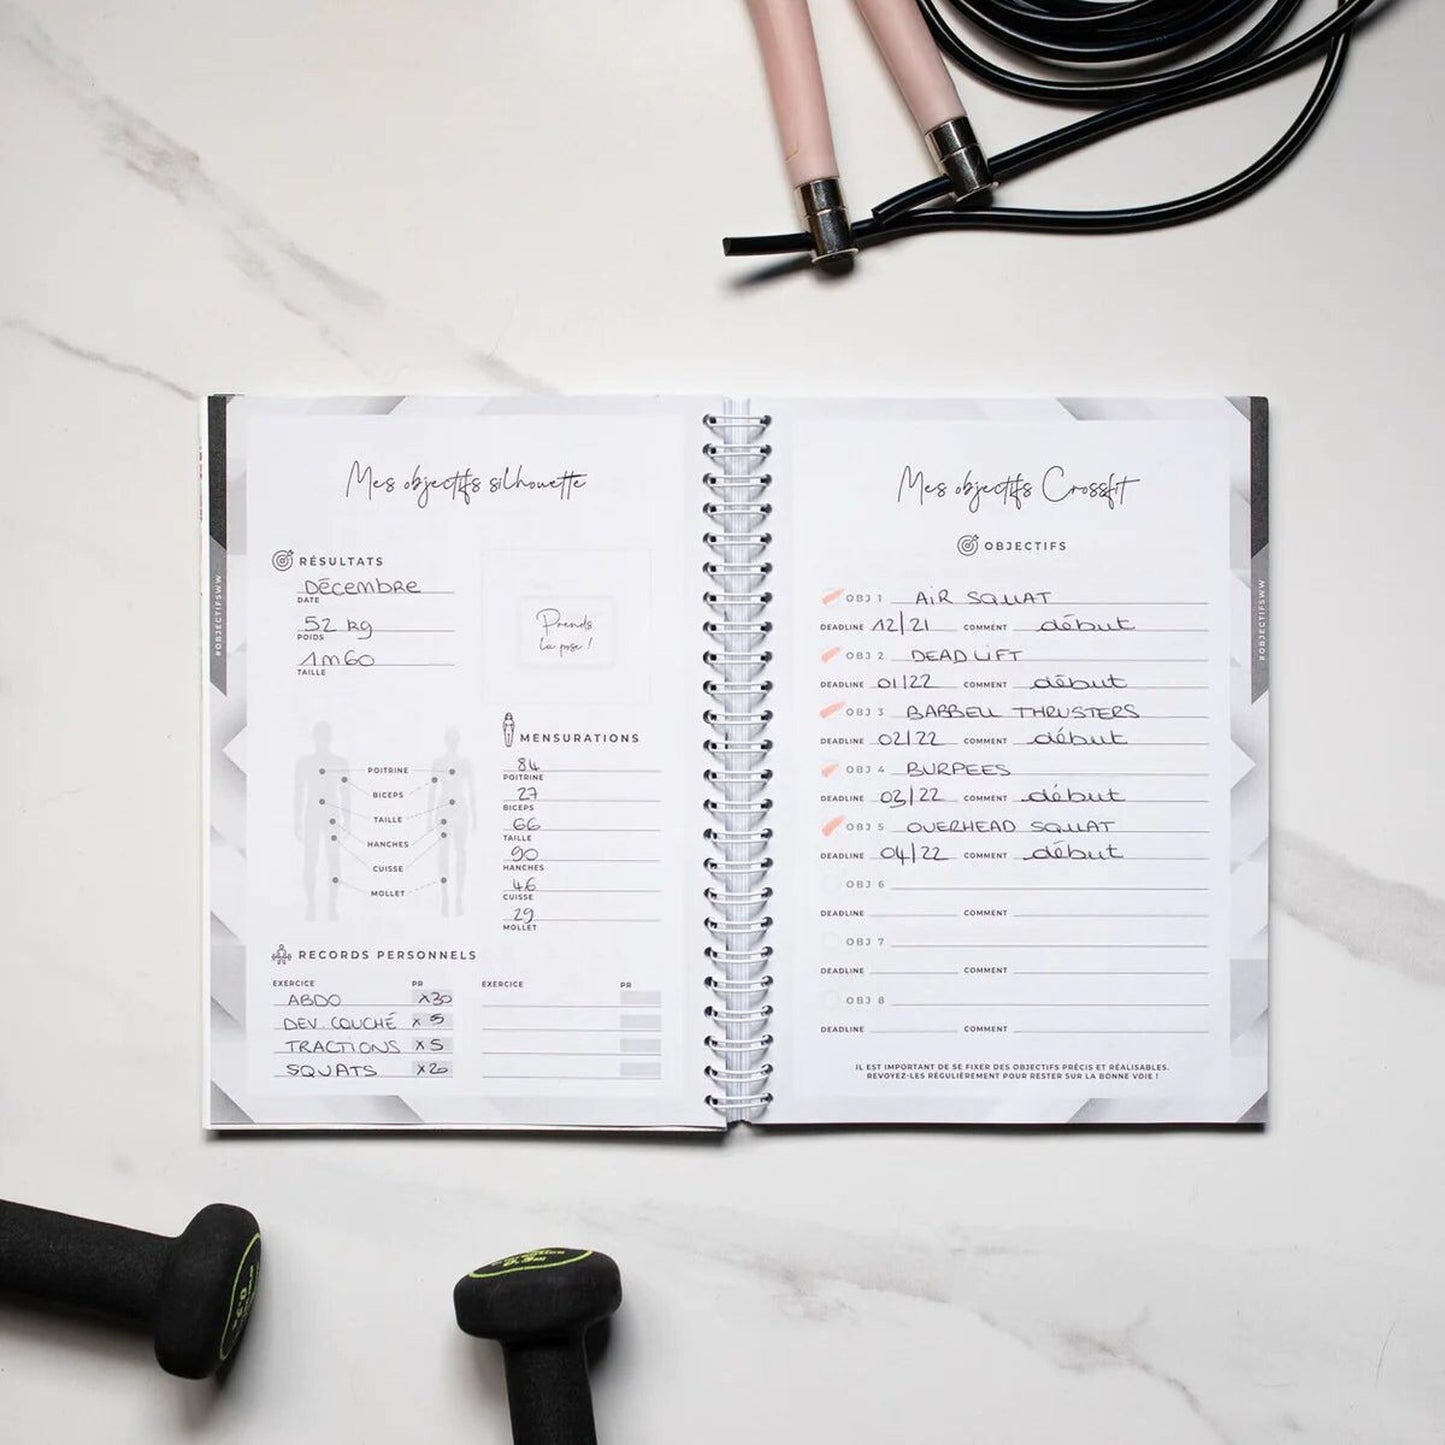 Mes objectifs silhouette
RÉSULTATS
Décembre
DATE
52 kg
POIDS
1m60
TAILLE
Prends
la pose !
#OBJECTIFSWW
MENSURATIONS
84
POITRINE
27
BICEPS
66
TAILLE
90
HANCHES
46
CUISSE
29
MOLLET
POITRINE
BICEPS
TAILLE
HANCHES
CUISSE
MOLLET
RECORDS PERSONNELS
EXERCICE PR EXERCICE PR
ABDO x30
DEV. COUCHÉ x 5
TRACTIONS x 5
SQUATS x20
Mes objectifs Crossfit
OBJECTIFS
OBJ 1 AIR SQUAT
DEADLINE 12/21 COMMENT début
OBJ 2 DEADLIFT
DEADLINE 01/22 COMMENT début
OBJ 3 BARBELL THRUSTERS
DEADLINE 02/22 COMMENT début
OBJ 4 BURPEES
DEADLINE 03/22 COMMENT début
OBJ 5 OVERHEAD SQUAT
DEADLINE 04/22 COMMENT début
OBJ 6
DEADLINE COMMENT
OBJ 7
DEADLINE COMMENT
OBJ 8
DEADLINE COMMENT
IL EST IMPORTANT DE SE FIXER DES OBJECTIFS PRÉCIS ET RÉALISABLES.
REVOYEZ-LES RÉGULIÈREMENT POUR RESTER SUR LA BONNE VOIE !
#OBJECTIFSWW